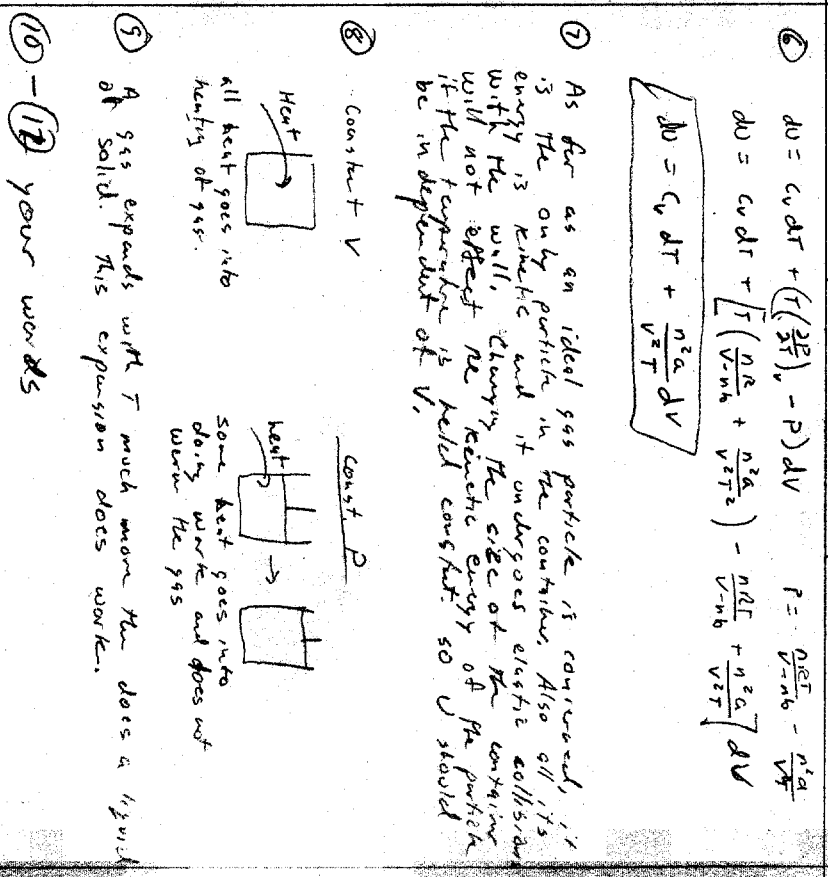 ⑥ dU = Cv dT + (T(∂P/∂T)v - P) dV    P = nRT/(V-nb) - n²a/(V²T)
dU = Cv dT + [T(nR/(V-nb) + n²a/(V²T²)) - nRT/(V-nb) + n²a/(V²T)] dV
dU = Cv dT + n²a/(V²T) dV
⑦ As far as an ideal gas particle is concerned, it
is the only particle in the container. Also all its
energy is kinetic and it undergoes elastic collisions
with the wall. Changing the size of the container
will not effect the kinetic energy of the particle
if the temperature is held constant. so U should
be independent of V.
⑧ Constant V
Heat
all heat goes into
heating of gas.
const. P
heat →
some heat goes into
doing work and does not
warm the gas
⑨ A gas expands with T much more then does a liquid
or solid. This expansion does work.
⑩ - ⑫ your words